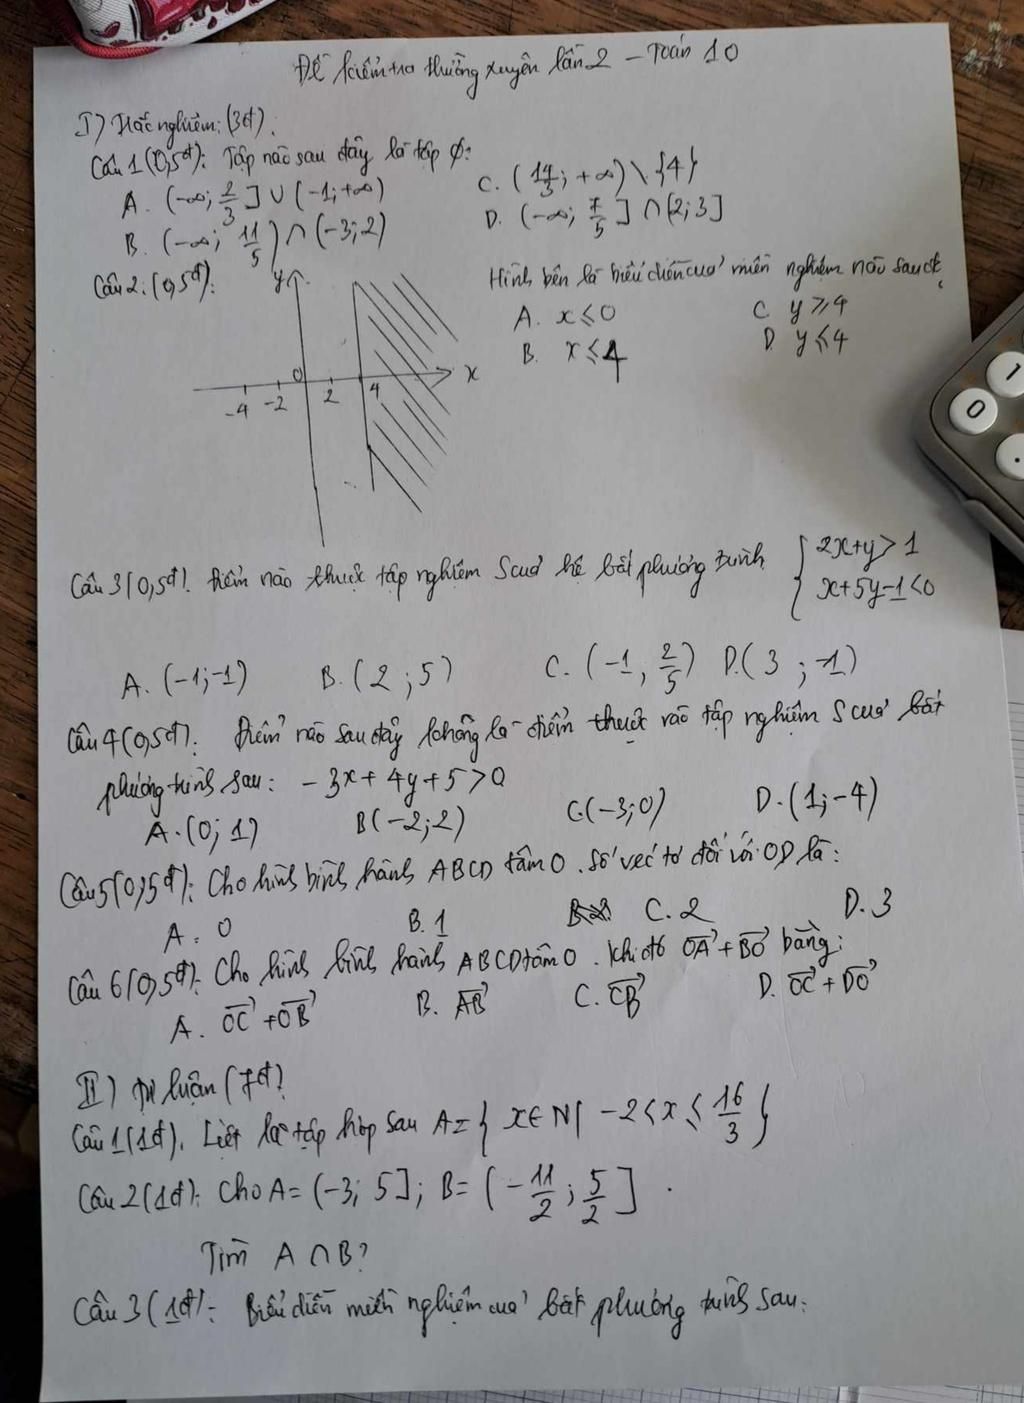 Đề kiểm tra thường xuyên lần 2 – Toán 10
I) Trắc nghiệm: (3đ).
Câu 1 (0,5đ): Tập nào sau đây là tập ∅:
A. (-∞; 2/3] ∪ (-1; +∞)
C. (14/3; +∞) \ {4}
B. (-∞; 11/5) ∩ (-3; 2)
D. (-∞; 7/5] ∩ [2; 3]
Câu 2: (0,5đ):
Hình bên là biểu diễn của miền nghiệm nào sau đ
A. x ≤ 0
C. y ≥ 4
B. x ≤ 4
D. y ≤ 4
y
0
x
-4 -2 2 4
Câu 3 (0,5đ): Điểm nào thuộc tập nghiệm S của hệ bất phương trình { 2x+y > 1
x+5y-1 < 0
A. (-1; -1) B. (2; 5) C. (-1; 2/5) D. (3; -1)
Câu 4 (0,5đ): Điểm nào sau đây không là điểm thuộc vào tập nghiệm S của bất
phương trình sau: -3x + 4y + 5 > 0
A. (0; 1) B (-2; 2) C. (-3; 0) D. (1; -4)
Câu 5 (0,5đ): Cho hình bình hành ABCD tâm O. Số véc tơ đối với OD là:
A. 0 B. 1 C. 2 D. 3
Câu 6 (0,5đ): Cho hình bình hành ABCD tâm O. Khi đó OA→ + BO→ bằng:
A. OC→ + OB→ B. AB→ C. CB→ D. OC→ + DO→
II) Tự luận (7đ)
Câu 1 (1đ). Liệt kê tập hợp sau A = { x ∈ N | -2 < x ≤ 16/3 }
Câu 2 (1đ): Cho A = (-3; 5]; B = (-11/2; 5/2].
Tìm A ∩ B?
Câu 3 (1đ): Biểu diễn miền nghiệm của bất phương trình sau:
1
0